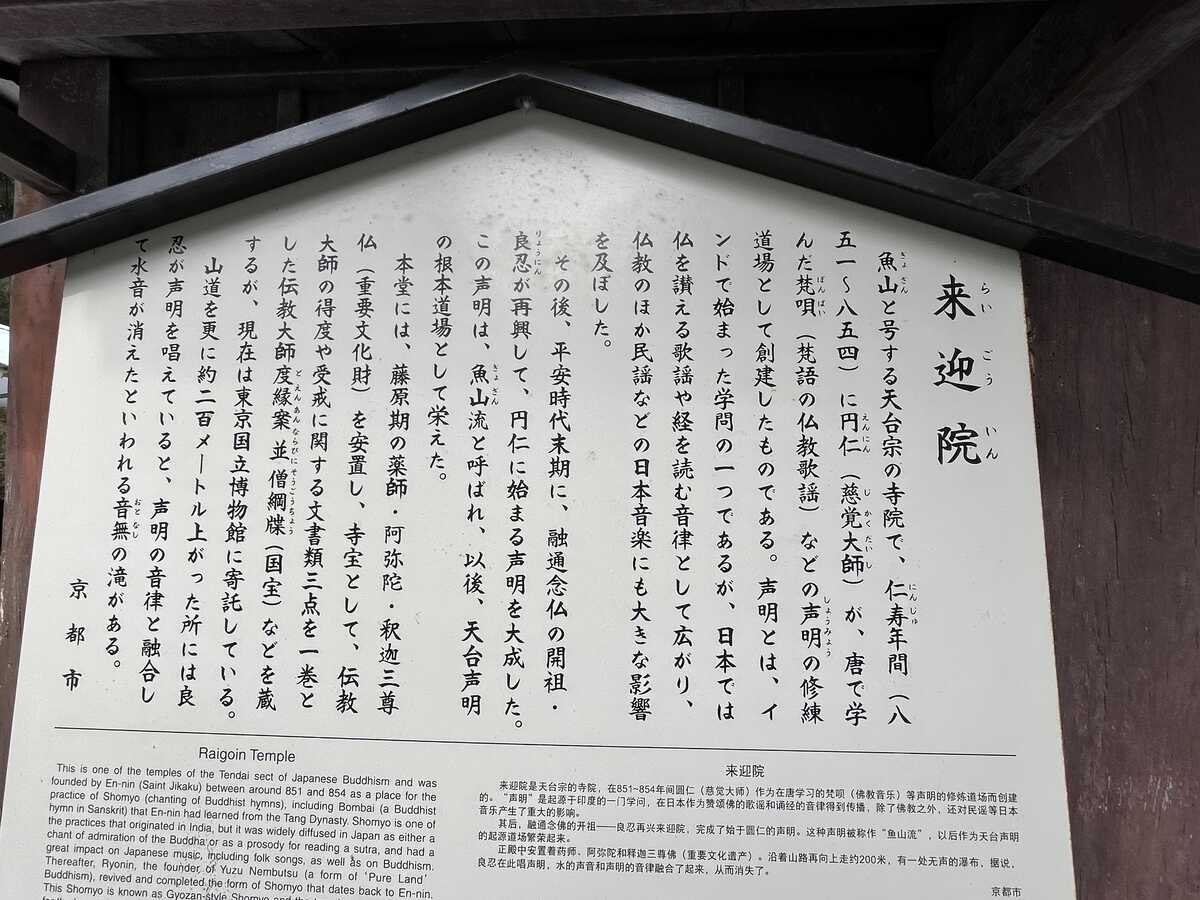 来迎院
らいごういん
魚山と号する天台宗の寺院で、仁寿年間（八
五一～八五四）に円仁（慈覚大師）が、唐で学
んだ梵唄（梵語の仏教歌謡）などの声明の修練
道場として創建したものである。声明とは、イ
ンドで始まった学問の一つであるが、日本では
仏を讃える歌謡や経を読む音律として広がり、
仏教のほか民謡などの日本音楽にも大きな影響
を及ぼした。
その後、平安時代末期に、融通念仏の開祖・
良忍が再興して、円仁に始まる声明を大成した。
この声明は、魚山流と呼ばれ、以後、天台声明
の根本道場として栄えた。
本堂には、藤原期の薬師・阿弥陀・釈迦三尊
仏（重要文化財）を安置し、寺宝として、伝教
大師の得度や受戒に関する文書類三点を一巻と
した伝教大師度縁案並僧綱牒（国宝）などを蔵
するが、現在は東京国立博物館に寄託している。
山道を更に約二百メートル上がった所には良
忍が声明を唱えていると、声明の音律と融合し
て水音が消えたといわれる音無の滝がある。
京都市
Raigoin Temple
This is one of the temples of the Tendai sect of Japanese Buddhism and was
founded by En-nin (Saint Jikaku) between around 851 and 854 as a place for the
practice of Shomyo (chanting of Buddhist hymns), including Bombai (a Buddhist
hymn in Sanskrit) that En-nin had learned from the Tang Dynasty. Shomyo is one of
the practices that originated in India, but it was widely diffused in Japan as either a
chant of admiration of the Buddha or as a prosody for reading a sutra, and had a
great impact on Japanese music, including folk songs, as well as on Buddhism.
Thereafter, Ryonin, the founder of Yuzu Nembutsu (a form of 'Pure Land'
Buddhism), revived and completed the form of Shomyo that dates back to En-nin.
This Shomyo is known as Gyozan-style Shomyo and the
来迎院
来迎院是天台宗的寺院，在851~854年间圆仁（慈觉大师）作为在唐学习的梵呗（佛教音乐）等声明的修炼道场而创建
的。“声明”是起源于印度的一门学问，在日本作为赞颂佛的歌谣和诵经的音律得到传播，除了佛教之外，还对民谣等日本
音乐产生了重大的影响。
其后，融通念佛的开祖——良忍再兴来迎院，完成了始于圆仁的声明。这种声明被称作“鱼山流”，以后作为天台声明
的起源道场繁荣起来。
正殿中安置着药师、阿弥陀和释迦三尊佛（重要文化遗产）。沿着山路再向上走约200米，有一处无声的瀑布，据说，
良忍在此唱声明，水的声音和声明的音律融合了起来，从而消失了。
京都市